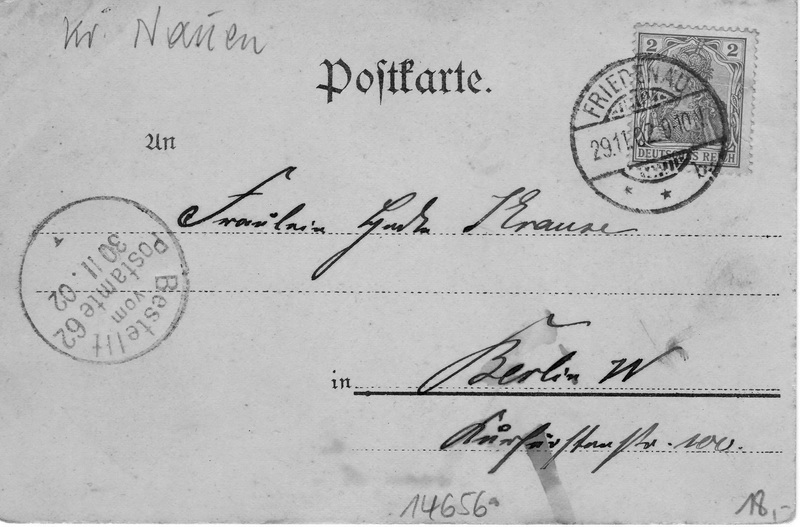 Kr. Nauen
Postkarte.
2 2
DEUTSCHES REICH
FRIEDENAU
29.11.02
An
Fräulein Hedw. Krause
Bestellt
vom
Postamte 62
30 11. 02
in Berlin W
Kurfürstenstr. 100.
14656a
18,-